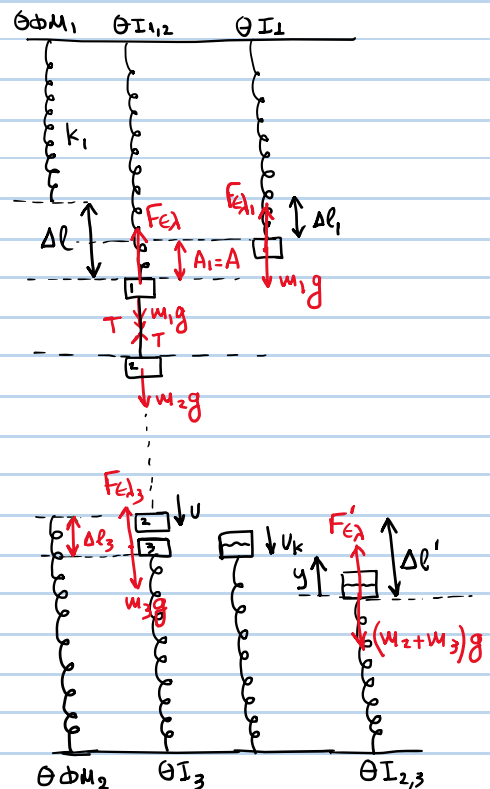 ΘΦΜ₁ ΘΙ₁,₂ ΘΙ₁
k₁
Δl
Fελ
A₁=A
Fελ₁
Δl₁
m₁g
1
T
m₁g
T
2
m₂g
Fελ₃
Δl₃
2
υ
3
m₃g
υκ
y
F'ελ
Δl'
(m₂+m₃)g
ΘΦΜ₂ ΘΙ₃ ΘΙ₂,₃